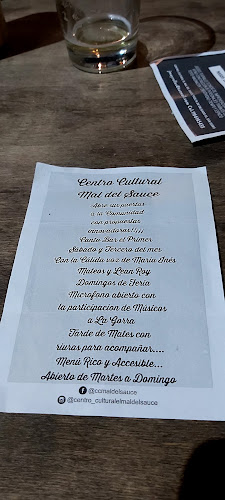 Centro Cultural
Mal del Sauce
Abre sus puertas
a la Comunidad
con propuestas
innovadoras!!¡¡
Canto Bar el Primer
Sabado y Tercero del mes
Con la Calida voz de Maria Inés
Mateos y Lean Roy
Domingos de Feria
Microfono abierto con
la participacion de Músicos
a La Gorra
Tarde de Mates con
riuras para acompañar....
Menú Rico y Accesible...
Abierto de Martes a Domingo
@ccmaldelsauce
@centro_culturalelmaldelsauce